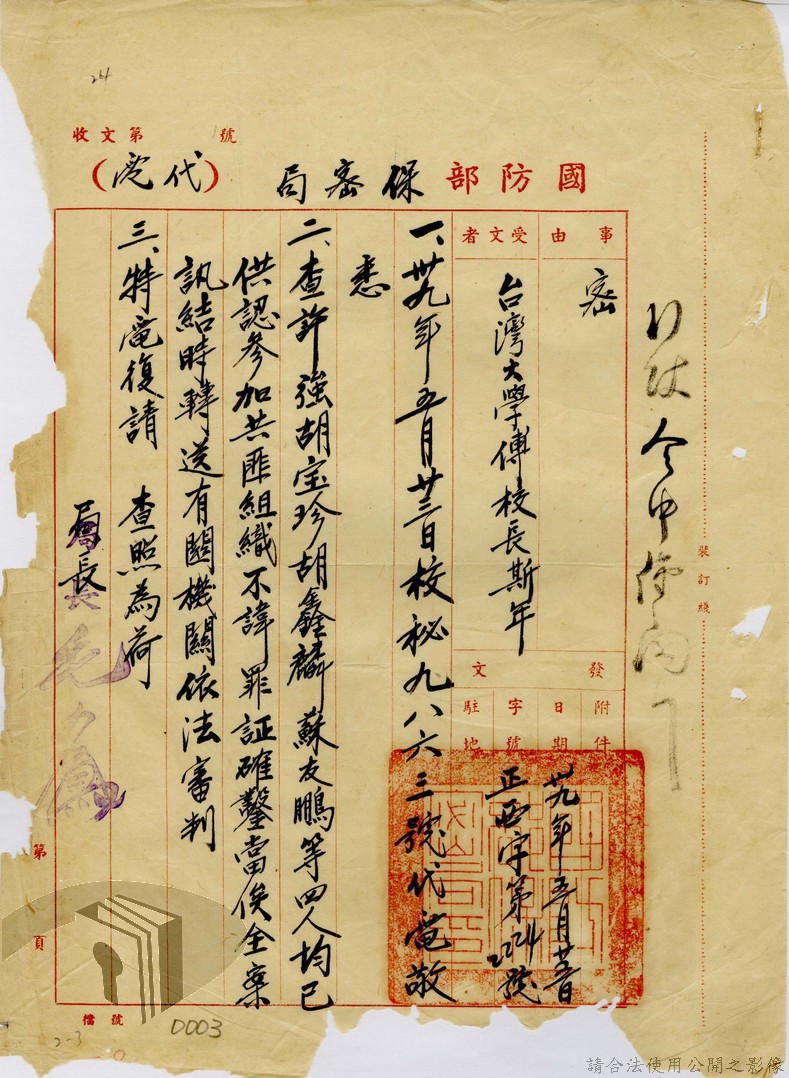 24
收文第 號
國防部保密局(代電)
事由
密
受文者
台灣大學傅校長斯年
發文
附件
日期
卅九年五月廿五日
字號
正西字第2274號
駐地
一、卅九年五月廿三日校秘九八六三號代電敬
悉
二、查許強胡宝珍胡鑫麟蘇友鵬等四人均已
供認參加共匪組織不諱罪証確鑿當俟全案
訊結時轉送有關機關依法審判
三、特電復請 查照為荷
局長
局長毛人鳳
裝訂綫
第 頁
檔號
0003
2-3
請合法使用公開之影像